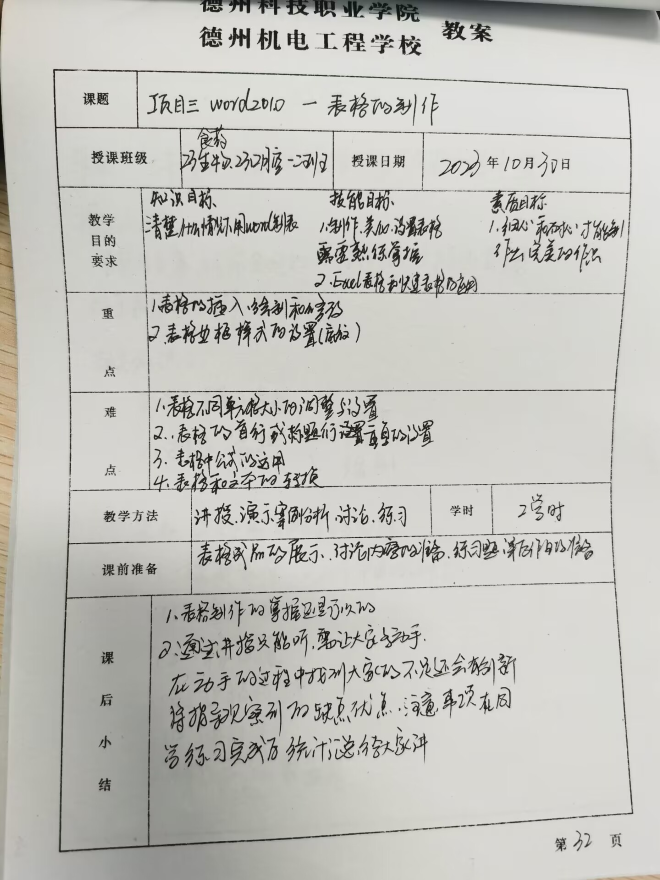 德州科技职业学院
德州机电工程学校 教案
课题 项目三 word2010 — 表格的制作
食药
授课班级 授课日期 2023年10月30日
教学目的要求
知识目标 技能目标 素质目标
清楚什么情况下用word制表
1.制作、美加、设置表格
需要熟练掌握
2.Excel表格和快速表格的应用
1.细心和耐心才能制
作出完美的作品
重点
1.表格的插入、绘制和修改
2.表格边框样式的设置(底纹)
难点
1.表格不同单元格大小的调整与设置
2.表格的首行或标题行设置重复的设置
3.表格中公式的运用
4.表格和文本的转换
教学方法 讲授、演示、案例分析、讨论、练习 学时 2学时
课前准备 表格成品的展示、讨论内容的准备、练习题、课后作业的准备
课后小结
1.表格制作的掌握还是可以的
2.通过讲授只能听,需让大家多动手.
在动手的过程中找到大家的不足还会有创新
将指导观察到的缺点优点、注意事项在同
学练习完成后统计汇总给大家讲
第32页